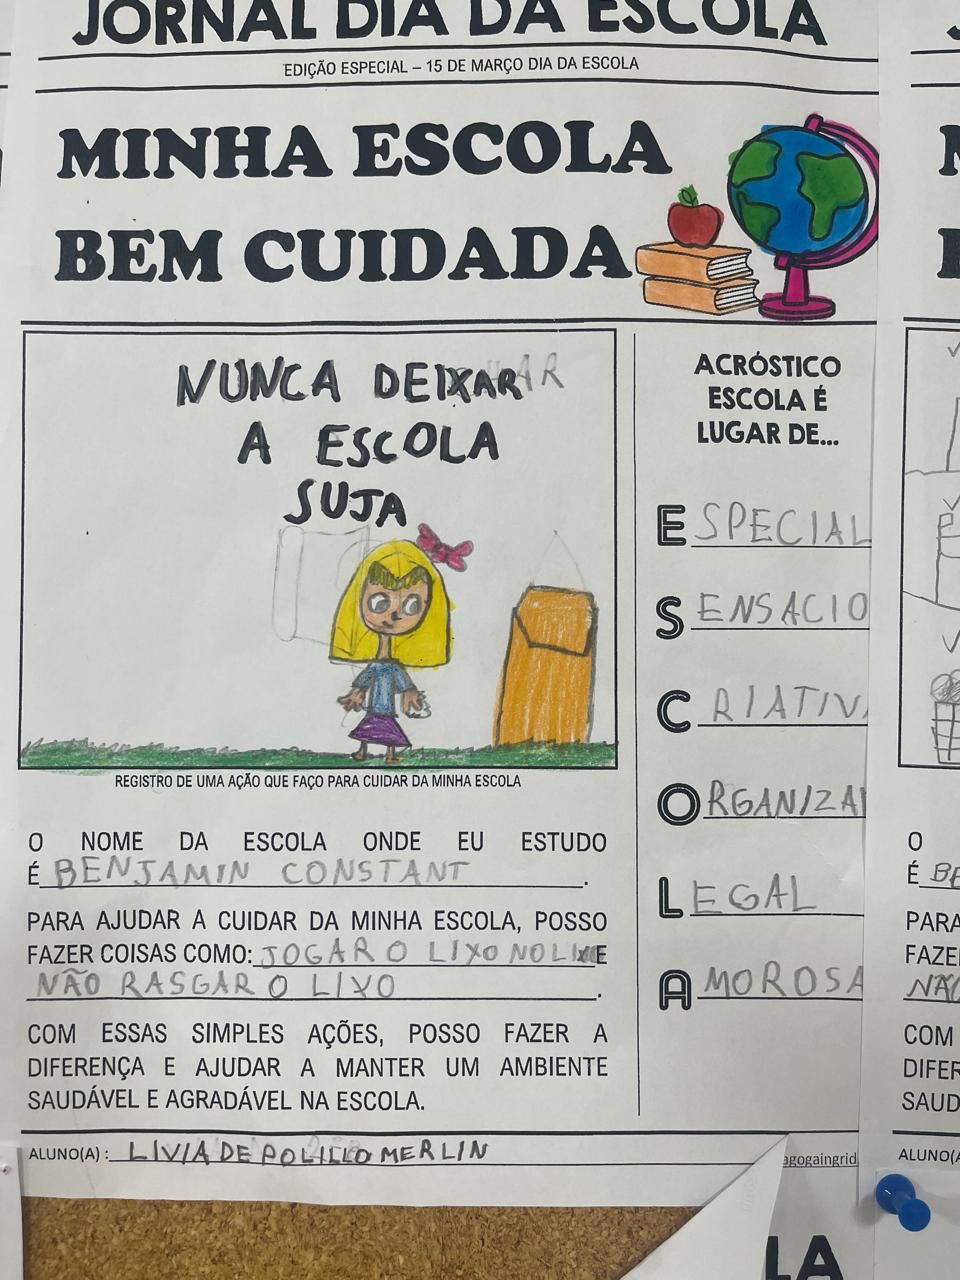 JORNAL DIA DA ESCOLA
EDIÇÃO ESPECIAL – 15 DE MARÇO DIA DA ESCOLA
MINHA ESCOLA
BEM CUIDADA
NUNCA DEIXAR
A ESCOLA
SUJA
REGISTRO DE UMA AÇÃO QUE FAÇO PARA CUIDAR DA MINHA ESCOLA
O NOME DA ESCOLA ONDE EU ESTUDO
É BENJAMIN CONSTANT.
PARA AJUDAR A CUIDAR DA MINHA ESCOLA, POSSO
FAZER COISAS COMO: JOGAR O LIXO NO LIXE
NÃO RASGAR O LIVO.
COM ESSAS SIMPLES AÇÕES, POSSO FAZER A
DIFERENÇA E AJUDAR A MANTER UM AMBIENTE
SAUDÁVEL E AGRADÁVEL NA ESCOLA.
ACRÓSTICO
ESCOLA É
LUGAR DE...
ESPECIAL
SENSACIO
CRIATIVA
ORGANIZA
LEGAL
AMOROSA
ALUNO(A) : LIVIA DE POLILLO MERLIN
agogaingrid
O
É BE
PARA
FAZE
NÃO
COM
DIFER
SAUD
ALUNO(A
LA